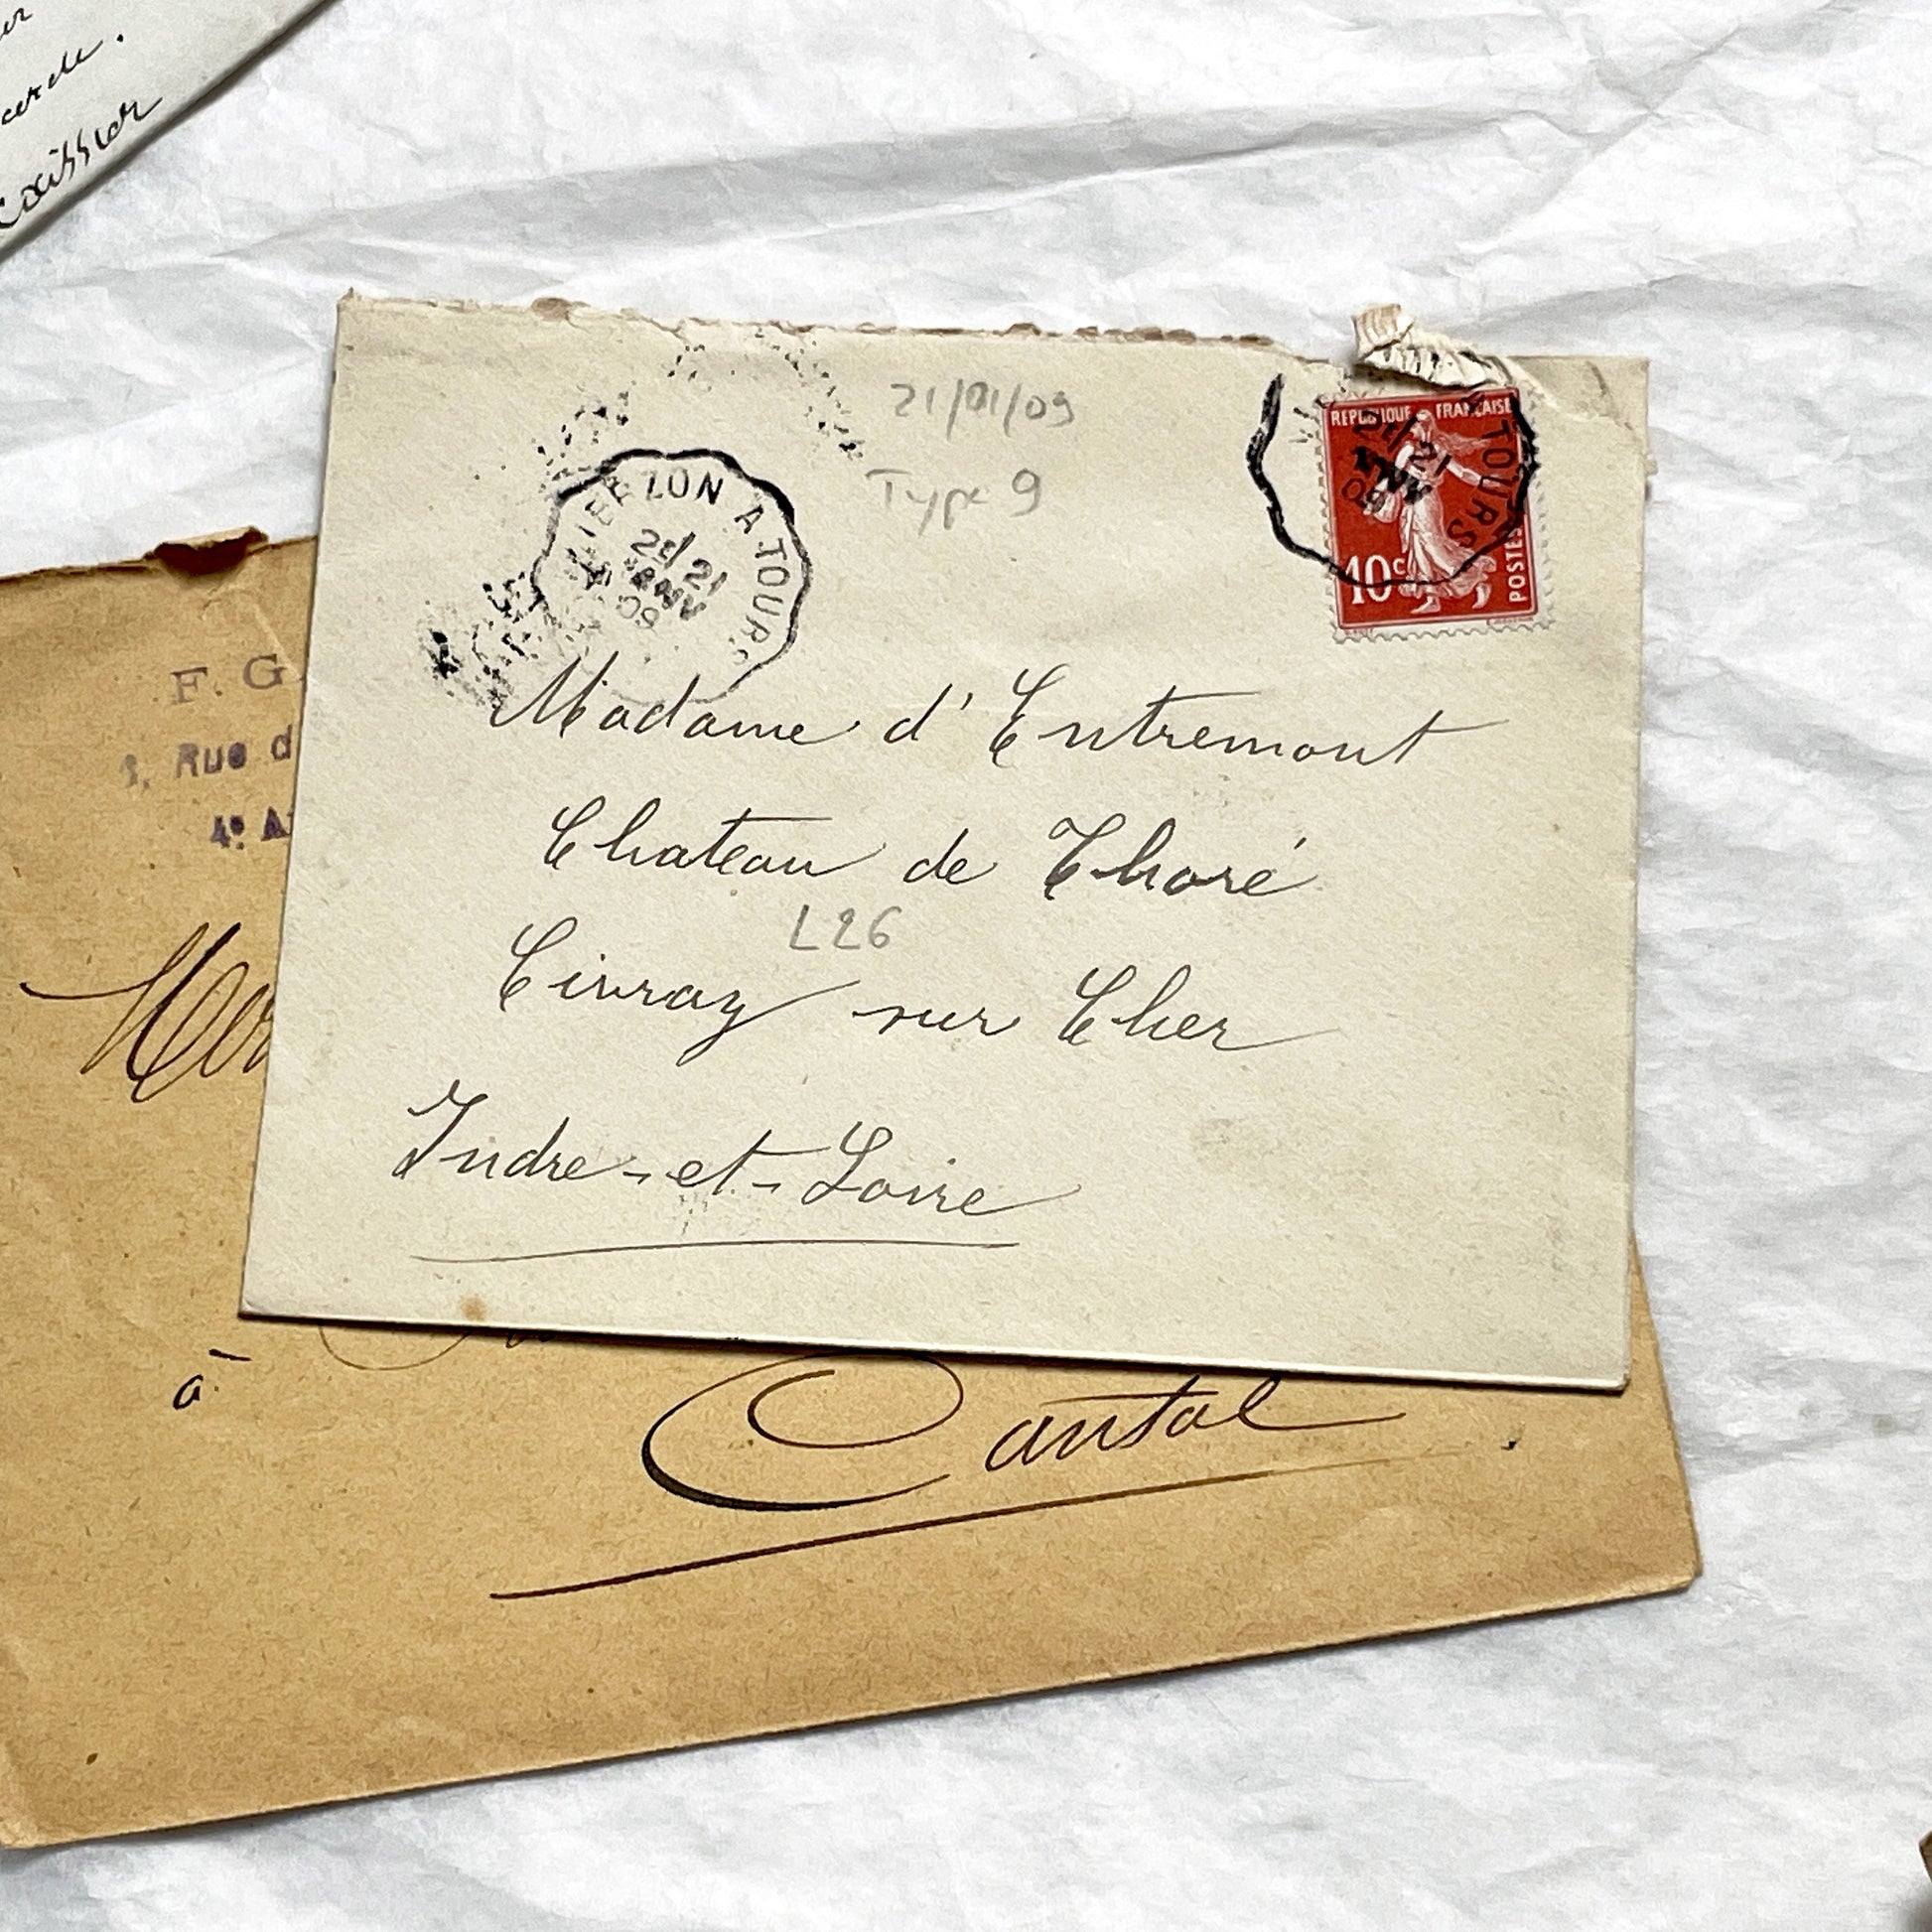 cercle.
21/01/09
Type 9
VIERZON A TOURS
21 21
JANV
09
REPUBLIQUE FRANÇAISE
TOURS
21
JANV
09
10c
POSTES
Madame d'Entremont
Chateau de Thoré
L26
Civray sur Cher
Indre-et-Loire
F. G
Rue d
4e A
à
Cantal